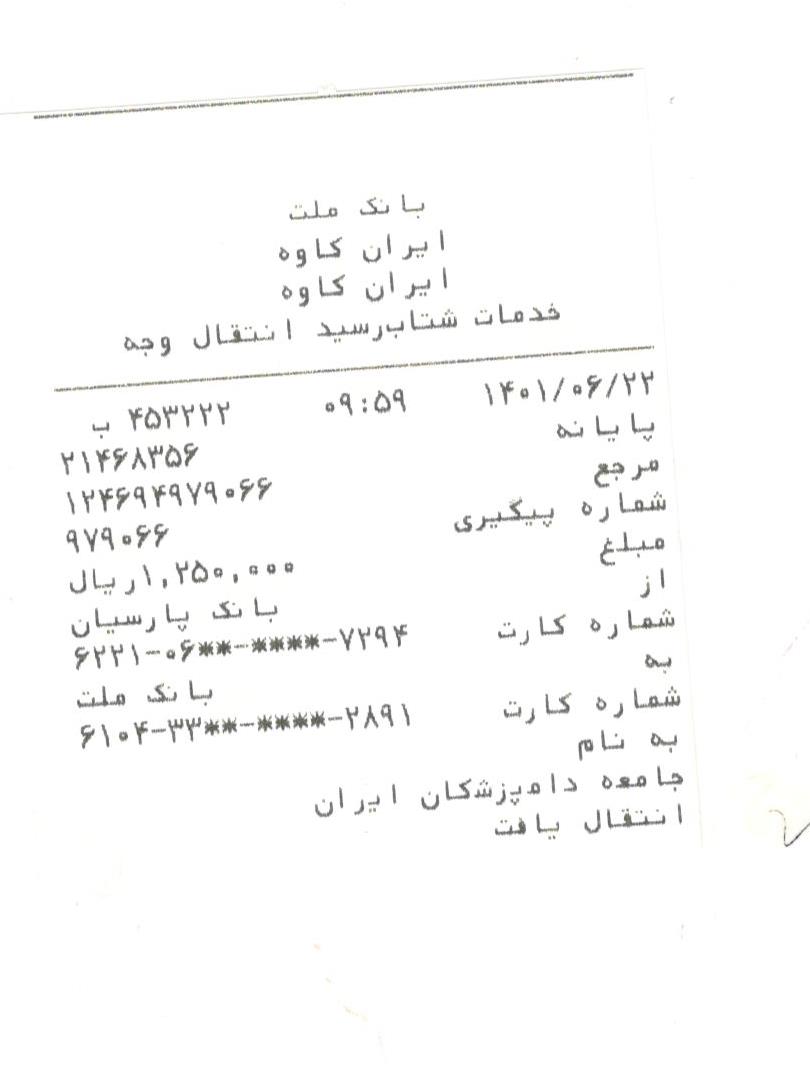 بانک ملت
ایران کاوه
ایران کاوه
خدمات شتاب‌رسید انتقال وجه
۱۴۰۱/۰۶/۲۲ ۰۹:۵۹ ۴۵۳۲۲۲ ب
پایانه ۲۱۴۶۸۳۵۶
مرجع ۱۲۴۶۹۴۹۷۹۰۶۶
شماره پیگیری ۹۷۹۰۶۶
مبلغ ۱,۲۵۰,۰۰۰ریال
از بانک پارسیان
شماره کارت ۶۲۲۱-۰۶**-****-۷۲۹۴
به بانک ملت
شماره کارت ۶۱۰۴-۳۳**-****-۲۸۹۱
به نام
جامعه دامپزشکان ایران
انتقال یافت